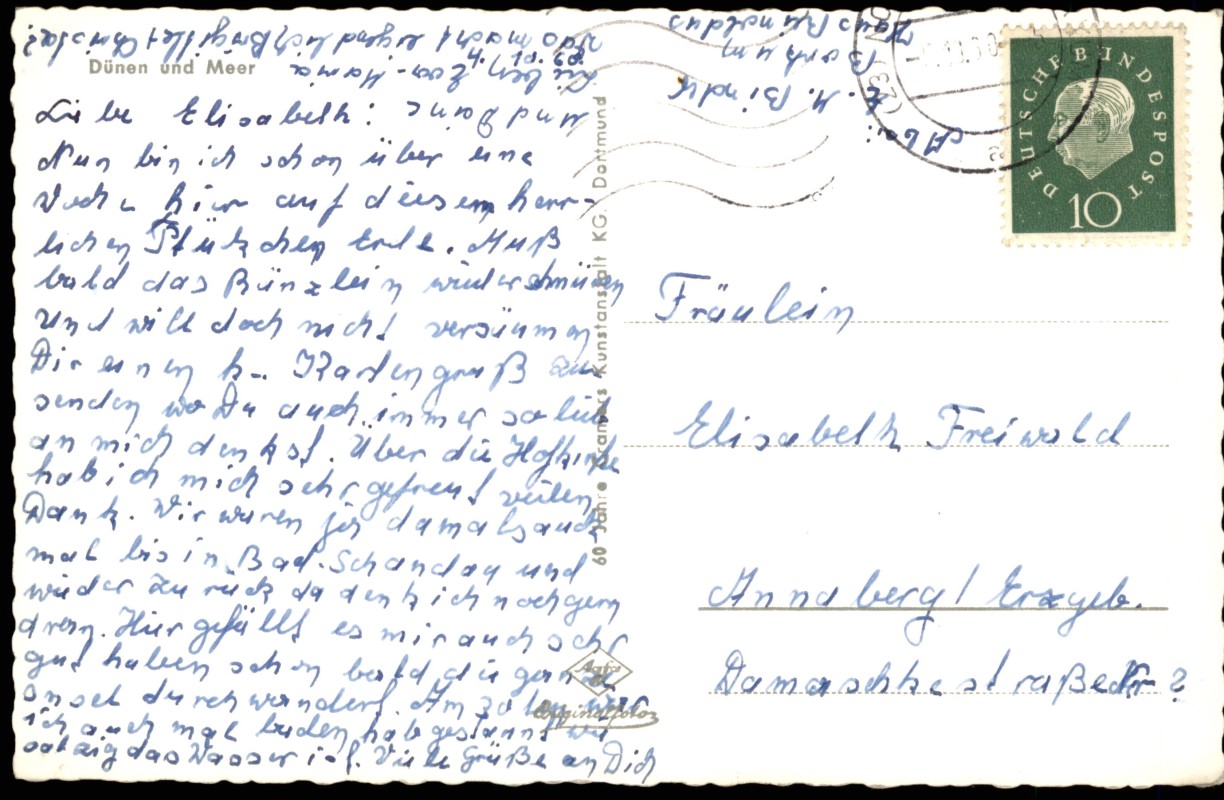 Dünen und Meer
Liebe Elisabeth!
Nun bin ich schon über eine
Woche hier auf diesem herr-
lichen Stückchen Erde. Muß
bald das Ränzlein wieder schnüren
und will doch nicht versäumen
Dir einen kl. Kartengruß zu
senden wo Du auch immer so lieb
an mich denkst. Über die
hab ich mich sehr gefreut vielen
Dank. Wir waren ja damals auch
mal bis in Bad-Schandau und
wieder zurück da denk ich noch gern
dran. Hier gefällt es mir auch sehr
gut haben schon bald die ganze
Insel durchwandert. Am
ich auch mal baden hab gestaunt wie
salzig das Wasser ist. Viele Grüße an Dich
und Hans
4.10.60.
was macht
Abs:
H.
60 Jahre Cramers Kunstanstalt KG. Dortmund
Agfa
Originalfoto
DEUTSCHE BUNDESPOST
10
Fräulein
Elisabeth Freiwald
Annaberg/ Erzgeb.
Damaschkestraße Nr ?